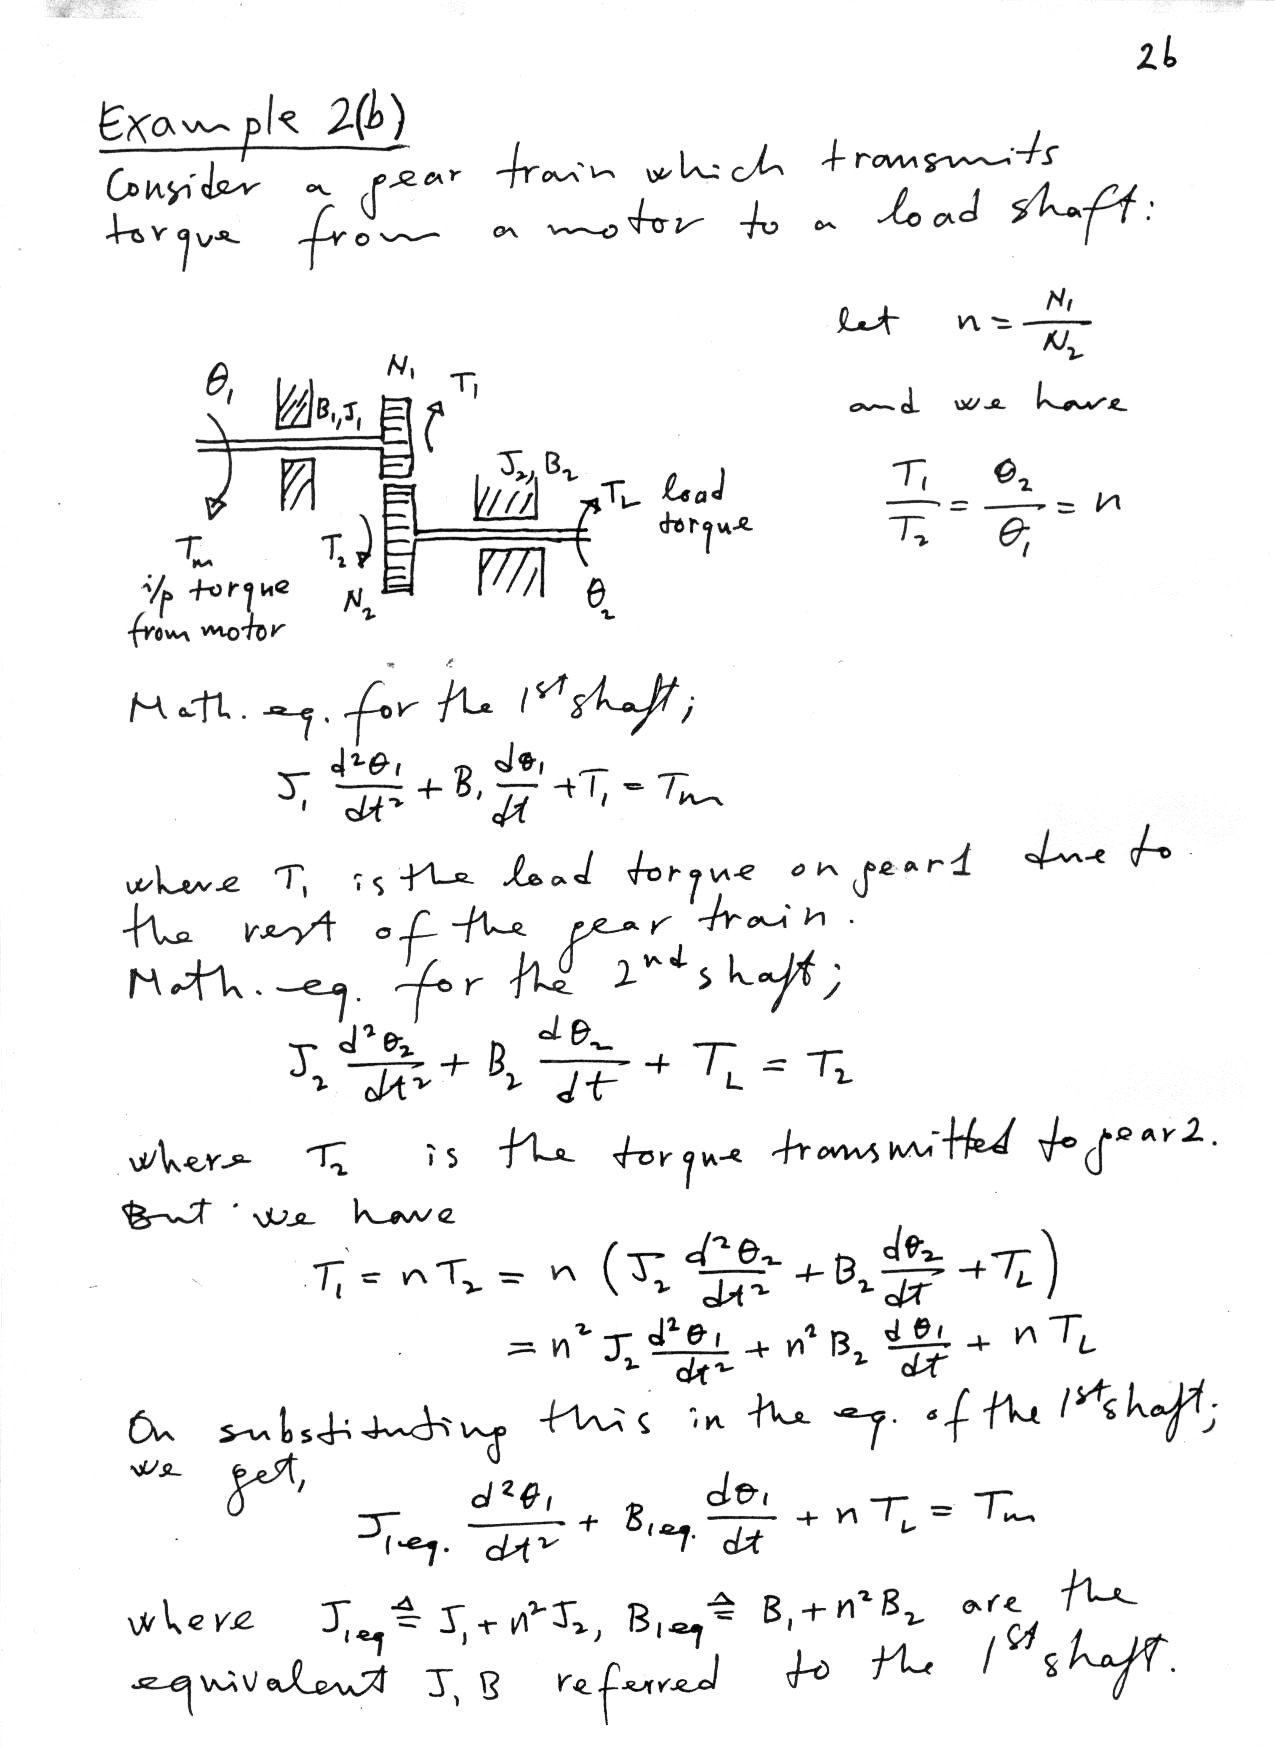 26
Example 2(b)
Consider a gear train which transmits
torque from a motor to a load shaft:
let n = N₁/N₂
and we have
T₁/T₂ = θ₂/θ₁ = n
θ₁
B₁, J₁
N₁
T₁
J₂, B₂
T_L load
torque
T_m
i/p torque
from motor
T₂
N₂
θ₂
Math. eq. for the 1st shaft;
J₁ d²θ₁/dt² + B₁ dθ₁/dt + T₁ = T_m
where T₁ is the load torque on gear 1 due to
the rest of the gear train.
Math. eq. for the 2nd shaft;
J₂ d²θ₂/dt² + B₂ dθ₂/dt + T_L = T₂
where T₂ is the torque transmitted to gear 2.
But we have
T₁ = nT₂ = n (J₂ d²θ₂/dt² + B₂ dθ₂/dt + T_L)
= n² J₂ d²θ₁/dt² + n² B₂ dθ₁/dt + n T_L
On substituting this in the eq. of the 1st shaft;
we get,
J₁eq. d²θ₁/dt² + B₁eq. dθ₁/dt + n T_L = T_m
where J₁eq ≜ J₁ + n²J₂, B₁eq ≜ B₁ + n²B₂ are the
equivalent J, B referred to the 1st shaft.